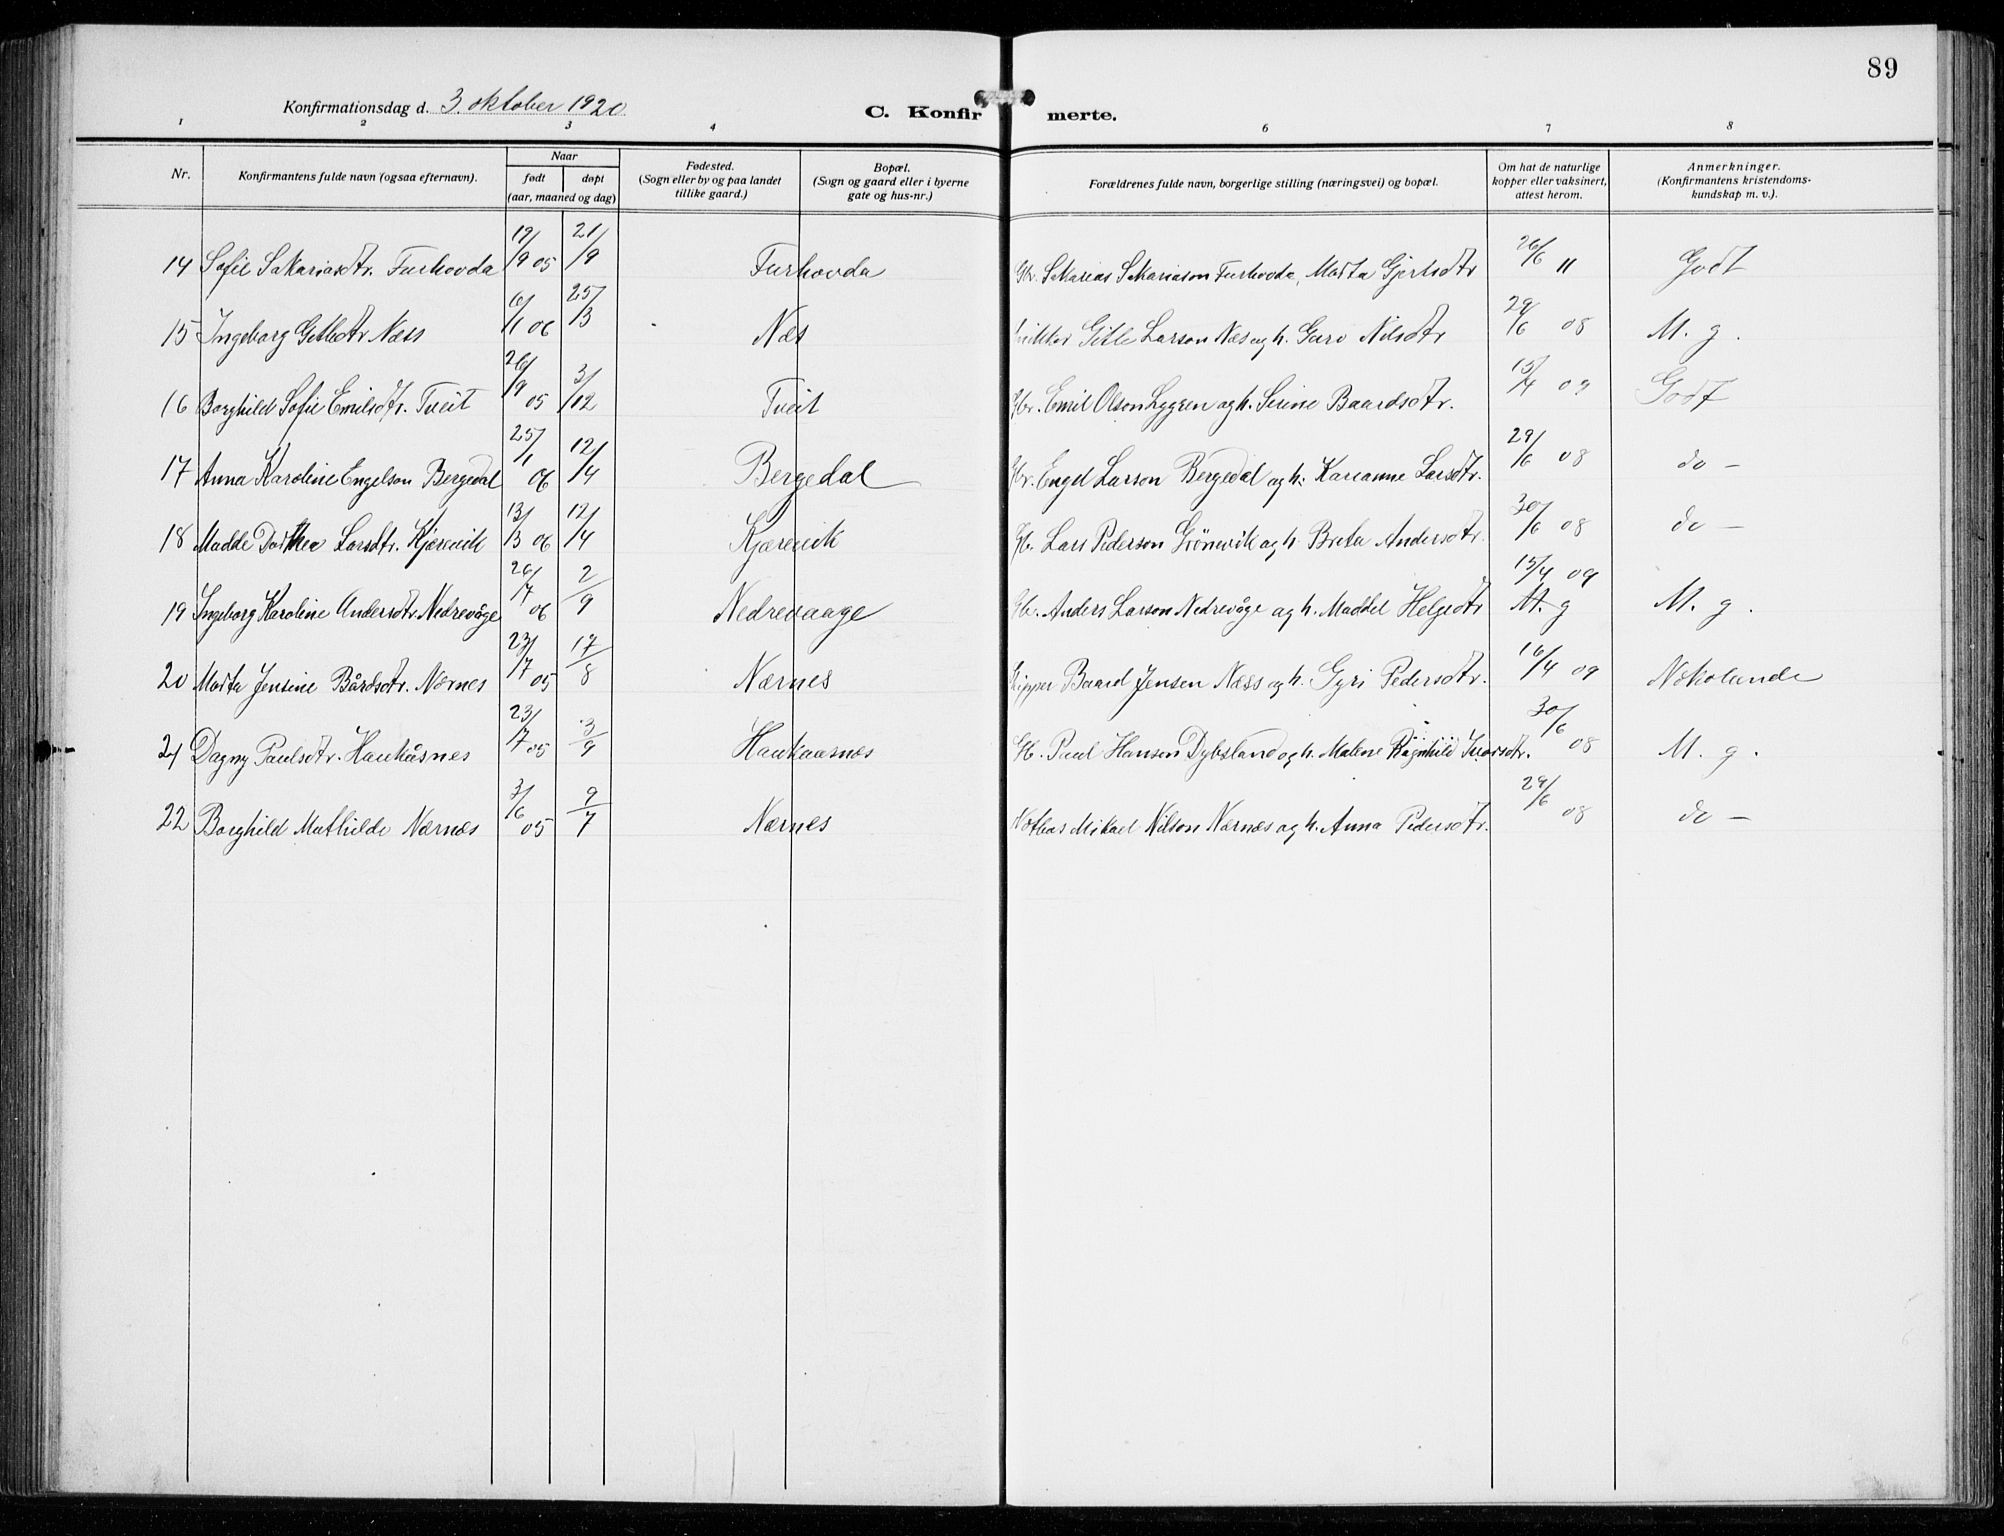 89
Konfirmationsdag d. 3. oktober 1920.
C. Konfirmerte.
1 2 3 4 6 7 8
Nr. Konfirmantens fulde navn (ogsaa efternavn). Naar født døpt (aar, maaned og dag) Fødested. (Sogn eller by og paa landet tillike gaard.) Bopæl. (Sogn og gaard eller i byerne gate og hus-nr.) Forældrenes fulde navn, borgerlige stilling (næringsvei) og bopæl. Om hat de naturlige kopper eller vaksinert, attest herom. Anmerkninger. (Konfirmantens kristendomskundskap m. v.).
14 Sofie Sakariasdtr. Furhovda 19/9 05 21/9 Furhovda Gbr. Sakarias Sakariason Furhovda, Marta Gjertsdtr 26/6 11 Godt
15 Ingeborg Gitledtr Næss 6/1 06 25/3 Næs Gitle Larson Næs og h. Guro Nilsdtr 29/6 08 M. g.
16 Borghild Sofie Emilsdtr. Tveit 26/9 05 3/12 Tveit Gbr. Emil Olson Lygren og h. Serine Baardsdtr. 15/4 09 Godt
17 Anna Karoline Engelson Bergedal 25/1 06 12/4 Bergedal Gbr. Engel Larson Bergedal og h. Karianne Larsdtr. 29/6 08 do –
18 Madde Dorthea Larsdtr. Kjærevik 13/3 06 12/4 Kjærevik Gbr. Lars Pederson Grönevik og h. Breta Andersdtr. 30/6 08 do –
19 Ingeborg Karoline Andersdtr. Nedrevåge 26/7 06 2/9 Nedrevaage Gbr. Anders Larson Nedrevåge og h. Maddel Helgedtr 15/4 09 M. g M. g.
20 Marta Jensine Bårdsdtr. Nærnes 23/7 05 17/8 Nærnes Skipper Baard Jensen Næss og h. Gyri Pedersdtr. 16/4 09 Nokolunde
21 Dagny Paulsdtr. Haukåsnes 23/7 05 3/9 Haukaasnes Gb. Paul Hansen Dybsland og h. Malene Ragnhild Ivarsdtr. 30/6 08 M. g.
22 Borghild Mathilde Nærnæs 3/6 05 9/7 Nærnes Notbas Mikael Nilson Nærnæs og h. Anna Pedersdtr. 29/6 08 do –